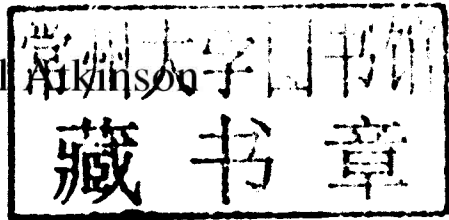 常州大学图书馆
l Atkinson
藏书章